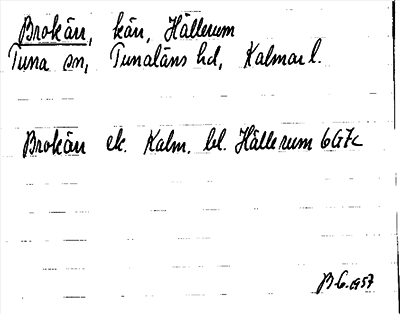 Brokärr, kärr, Hällerum
Tuna sn, Tunaläns hd, Kalmar l.
Brokärr ek. Kalm. bl. Hällerum 6G7c
B G. 1957